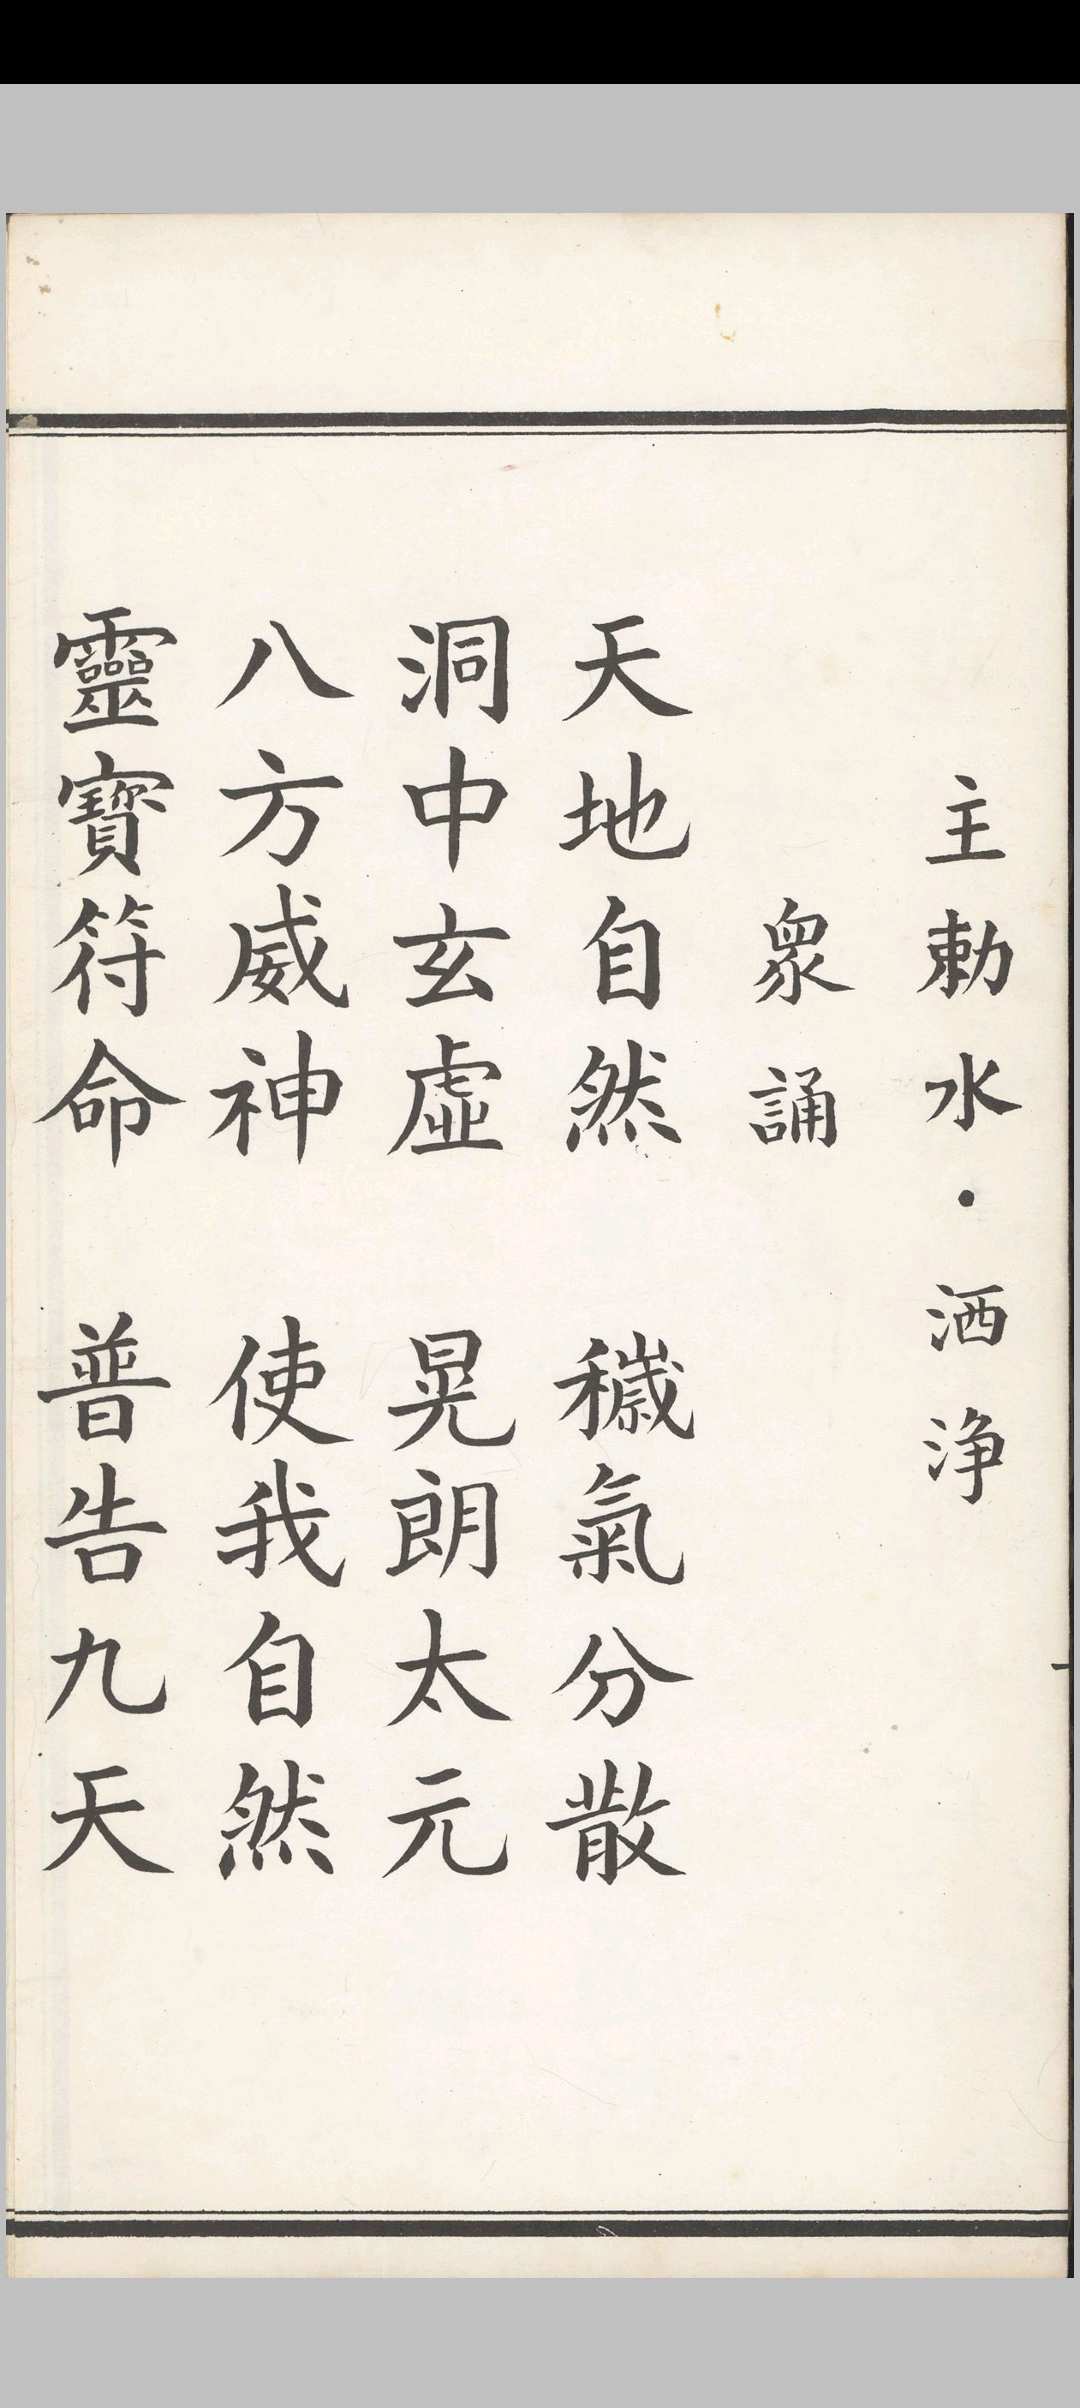 主勅水·洒浄
衆誦
天地自然 穢氣分散
洞中玄虛 晃朗太元
八方威神 使我自然
靈寶符命 普告九天